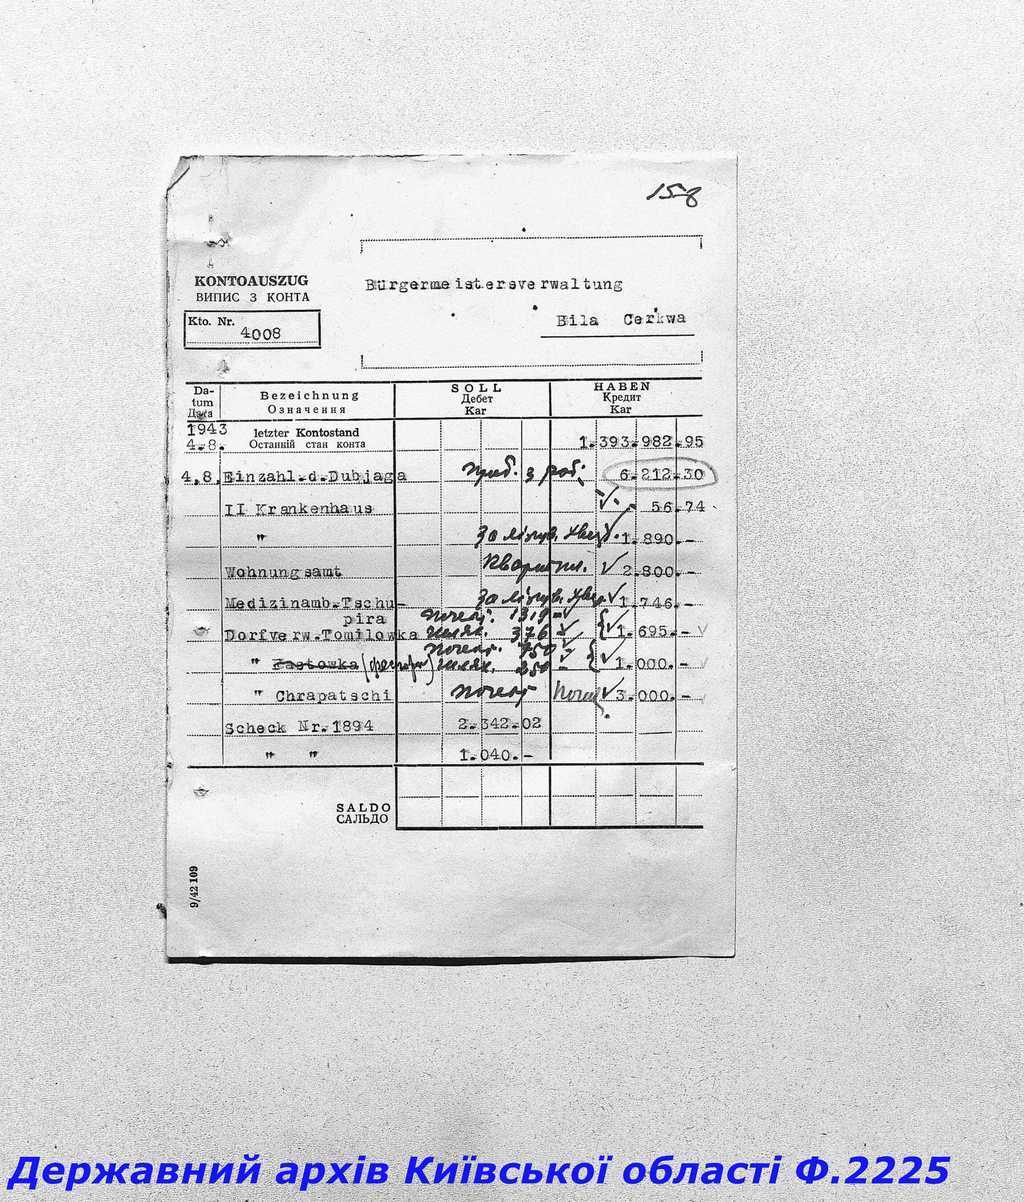 158
KONTOAUSZUG
ВИПИС З КОНТА
Kto. Nr. 4008
Bürgermeistersverwaltung
Bila Cerkwa
Datum Дата Bezeichnung Означення SOLL Дебет Kar HABEN Кредит Kar
1943
4.8. letzter Kontostand Останній стан конта 1.393.982.95
4.8. Einzahl.d.Dubjaga 6.212.30
II Krankenhaus 56.74
" 1.890.-
Wohnungsamt 2.800.-
Medizinamb.Tschu- 1.746.-
pira 1319
Dorfverw.Tomilowka 376 1.695.-
750
" Fastowka 250 - 1.000.-
" Chrapatschi 3.000.-
Scheck Nr.1894 2.342.02
" " 1.040.-
SALDO
САЛЬДО
9/42 109
Державний архів Київської області Ф.2225